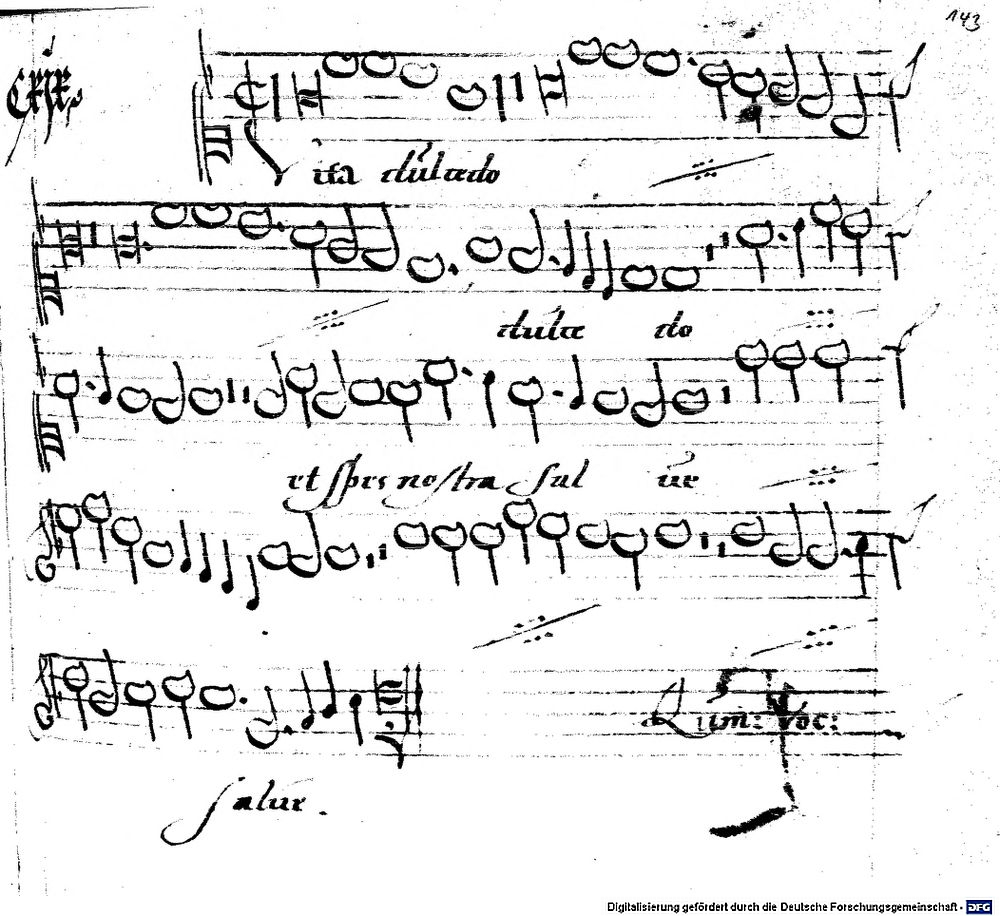 143
Vita dulcedo
dulce do
et spes nostra sal ue
salue.
Quin: voc:
Digitalisierung gefördert durch die Deutsche Forschungsgemeinschaft - DFG